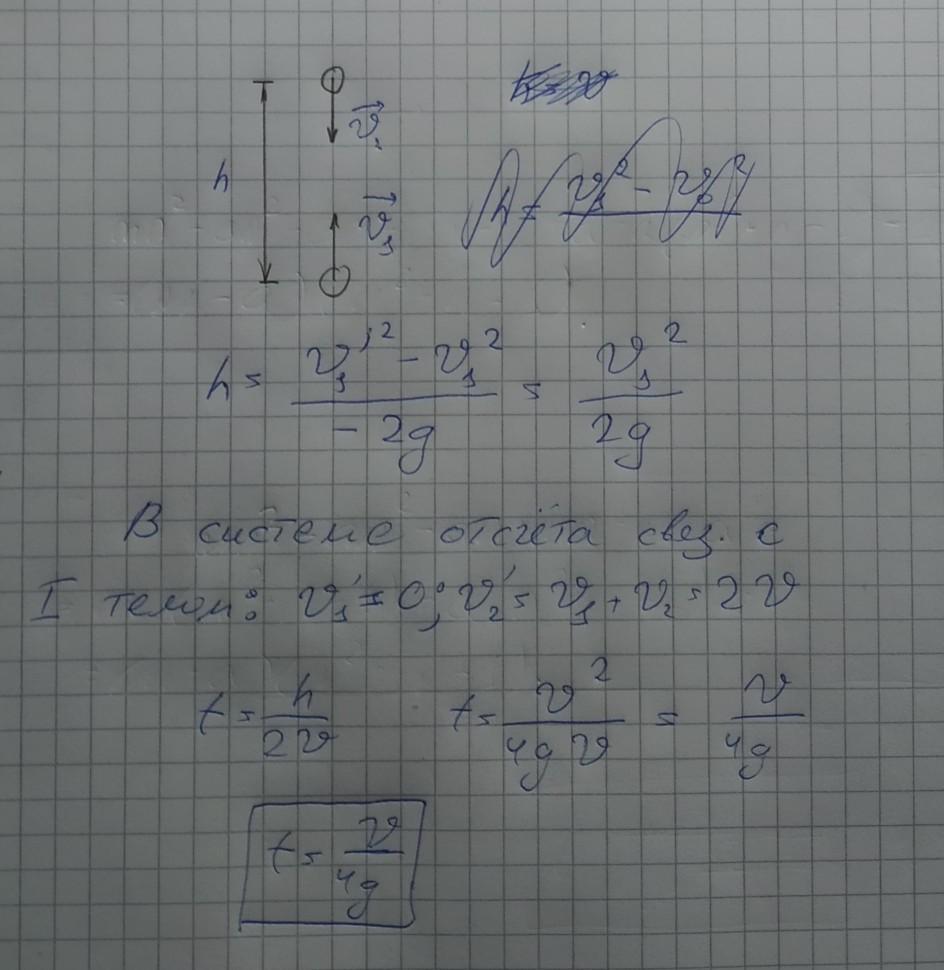 h
v⃗₂
v⃗₁
h = (v₁'² - v₁²)/(-2g) = v₁²/2g
В системе отсчёта свез. с
I телом: v₁' = 0; v₂' = v₁ + v₂ = 2v
t = h/2v t = v²/4gv = v/4g
t = v/4g